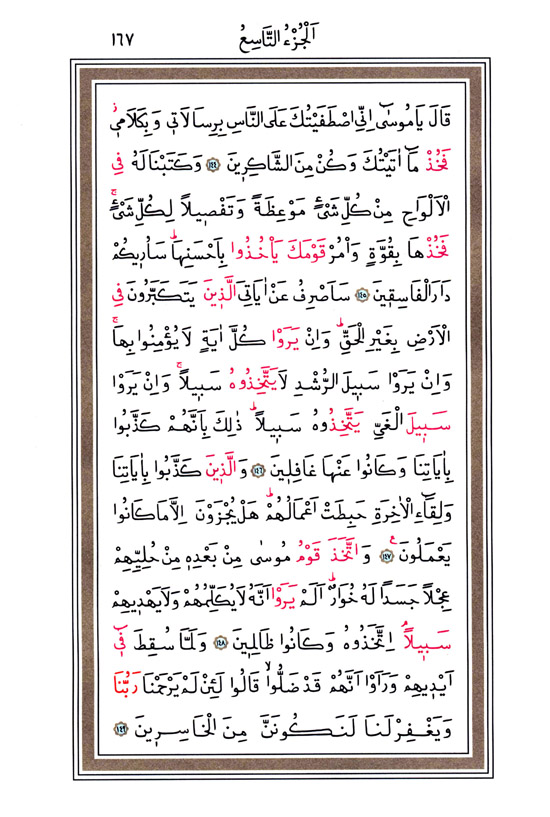 اَلْجُزْءُ التَّاسِعُ
١٦٧
قَالَ يَا مُوسٰٓى اِنِّي اصْطَفَيْتُكَ عَلَى النَّاسِ بِرِسَالَاتٖي وَبِكَلَامٖيۘ
فَخُذْ مَٓا اٰتَيْتُكَ وَكُنْ مِنَ الشَّاكِرٖينَ ﴿١٤٤﴾ وَكَتَبْنَا لَهُ فِي
الْاَلْوَاحِ مِنْ كُلِّ شَيْءٍ مَوْعِظَةً وَتَفْصٖيلاً لِكُلِّ شَيْءٍۚ
فَخُذْهَا بِقُوَّةٍ وَأْمُرْ قَوْمَكَ يَأْخُذُوا بِاَحْسَنِهَاۜ سَاُرٖيكُمْ
دَارَ الْفَاسِقٖينَ ﴿١٤٥﴾ سَاَصْرِفُ عَنْ اٰيَاتِيَ الَّذٖينَ يَتَكَبَّرُونَ فِي
الْاَرْضِ بِغَيْرِ الْحَقِّۜ وَاِنْ يَرَوْا كُلَّ اٰيَةٍ لَا يُؤْمِنُوا بِهَاۚ
وَاِنْ يَرَوْا سَبٖيلَ الرُّشْدِ لَا يَتَّخِذُوهُ سَبٖيلاًۚ وَاِنْ يَرَوْا
سَبٖيلَ الْغَيِّ يَتَّخِذُوهُ سَبٖيلاًۜ ذٰلِكَ بِاَنَّهُمْ كَذَّبُوا
بِاٰيَاتِنَا وَكَانُوا عَنْهَا غَافِلٖينَ ﴿١٤٦﴾ وَالَّذٖينَ كَذَّبُوا بِاٰيَاتِنَا
وَلِقَٓاءِ الْاٰخِرَةِ حَبِطَتْ اَعْمَالُهُمْۜ هَلْ يُجْزَوْنَ اِلَّا مَا كَانُوا
يَعْمَلُونَ۟ ﴿١٤٧﴾ وَاتَّخَذَ قَوْمُ مُوسٰى مِنْ بَعْدِهٖ مِنْ حُلِيِّهِمْ
عِجْلاً جَسَداً لَهُ خُوَارٌۜ اَلَمْ يَرَوْا اَنَّهُ لَا يُكَلِّمُهُمْ وَلَا يَهْدٖيهِمْ
سَبٖيلاًۢ اِتَّخَذُوهُ وَكَانُوا ظَالِمٖينَ ﴿١٤٨﴾ وَلَمَّا سُقِطَ فٖٓي
اَيْدٖيهِمْ وَرَاَوْا اَنَّهُمْ قَدْ ضَلُّواۙ قَالُوا لَئِنْ لَمْ يَرْحَمْنَا رَبُّنَا
وَيَغْفِرْ لَنَا لَنَكُونَنَّ مِنَ الْخَاسِرٖينَ ﴿١٤٩﴾